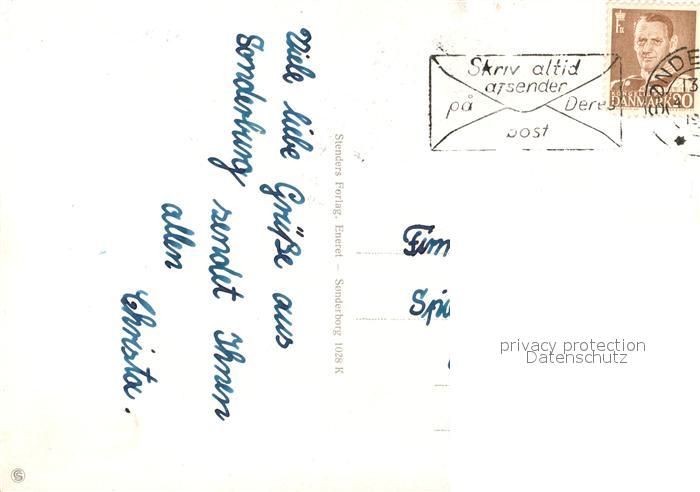 Viele liebe Grüße aus
Sonderburg sendet Ihnen
allen
Christa.
Stenders Forlag. Eneret – Sønderborg 1028 K
Skriv altid
afsender
på Deres
post
DANMARK 20
privacy protection
Datenschutz